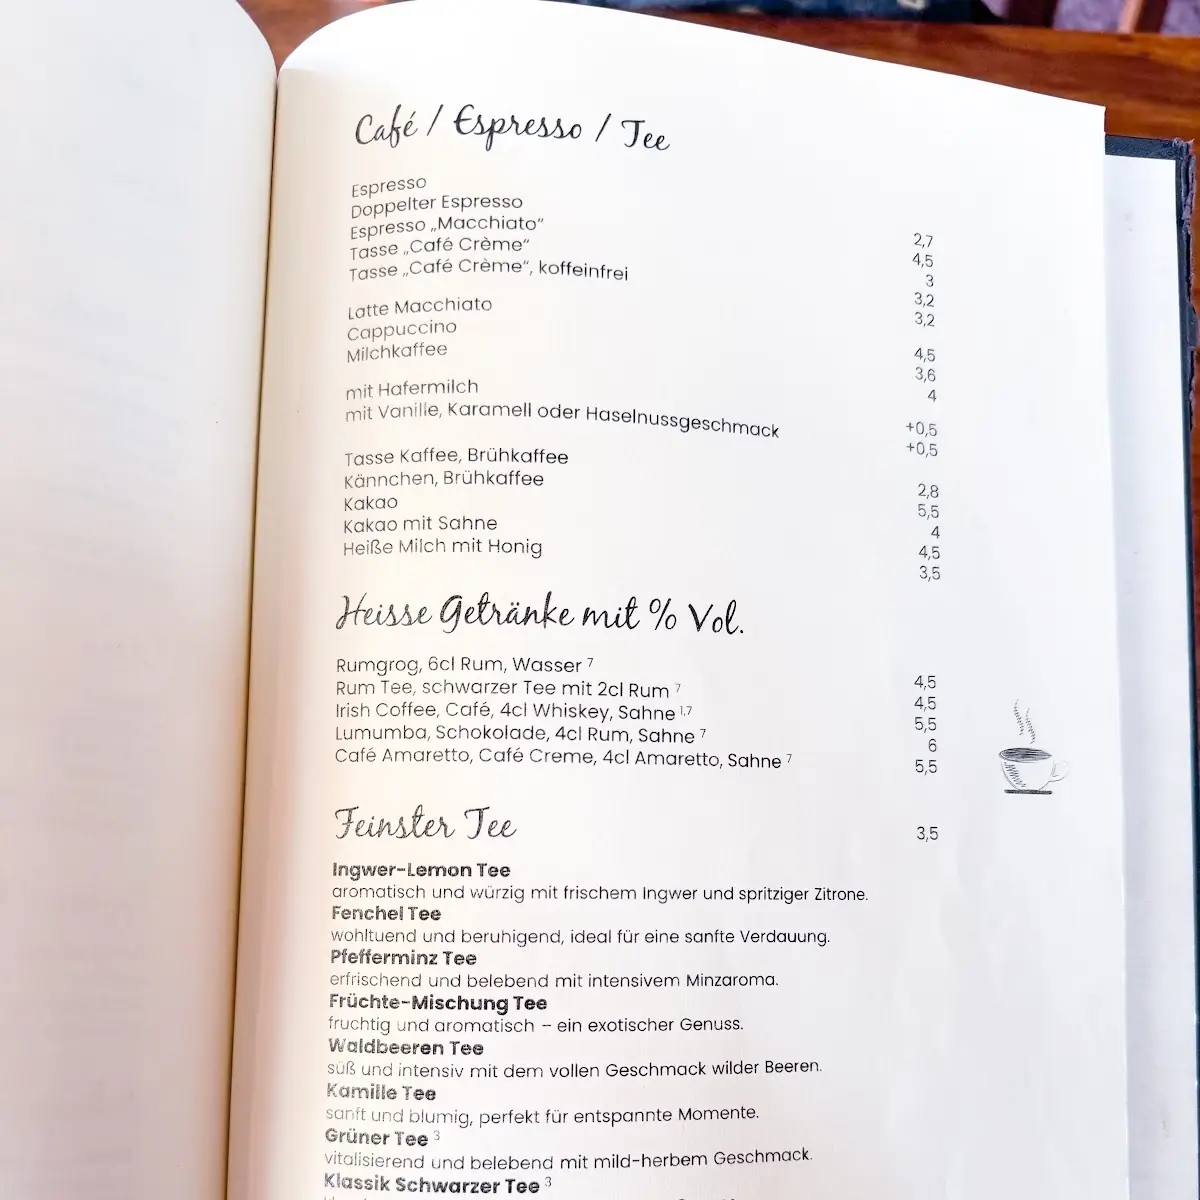 Café / Espresso / Tee
Espresso 2,7
Doppelter Espresso 4,5
Espresso „Macchiato“ 3
Tasse „Café Crème“ 3,2
Tasse „Café Crème“, koffeinfrei 3,2
Latte Macchiato 4,5
Cappuccino 3,6
Milchkaffee 4
mit Hafermilch +0,5
mit Vanille, Karamell oder Haselnussgeschmack +0,5
Tasse Kaffee, Brühkaffee 2,8
Kännchen, Brühkaffee 5,5
Kakao 4
Kakao mit Sahne 4,5
Heiße Milch mit Honig 3,5
Heisse Getränke mit % Vol.
Rumgrog, 6cl Rum, Wasser ⁷ 4,5
Rum Tee, schwarzer Tee mit 2cl Rum ⁷ 4,5
Irish Coffee, Café, 4cl Whiskey, Sahne ¹,⁷ 5,5
Lumumba, Schokolade, 4cl Rum, Sahne ⁷ 6
Café Amaretto, Café Creme, 4cl Amaretto, Sahne ⁷ 5,5
Feinster Tee 3,5
Ingwer-Lemon Tee
aromatisch und würzig mit frischem Ingwer und spritziger Zitrone.
Fenchel Tee
wohltuend und beruhigend, ideal für eine sanfte Verdauung.
Pfefferminz Tee
erfrischend und belebend mit intensivem Minzaroma.
Früchte-Mischung Tee
fruchtig und aromatisch – ein exotischer Genuss.
Waldbeeren Tee
süß und intensiv mit dem vollen Geschmack wilder Beeren.
Kamille Tee
sanft und blumig, perfekt für entspannte Momente.
Grüner Tee ³
vitalisierend und belebend mit mild-herbem Geschmack.
Klassik Schwarzer Tee ³